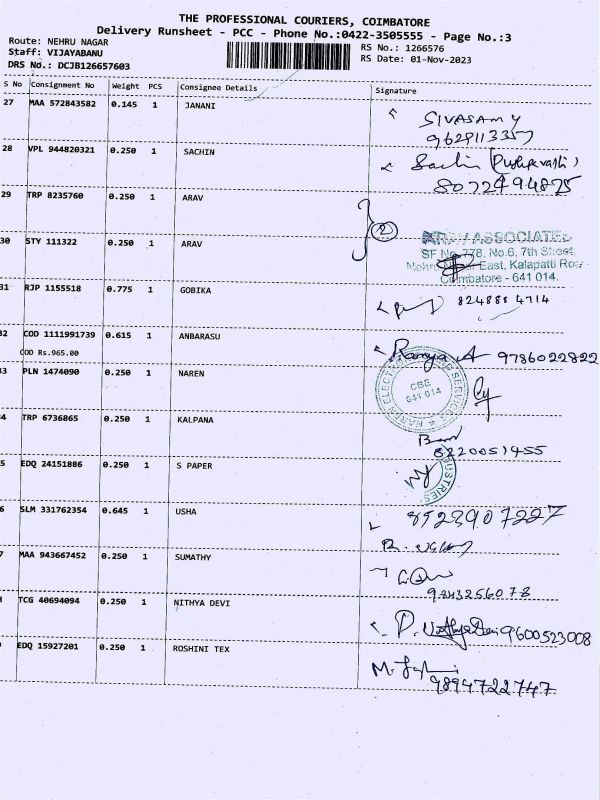 THE PROFESSIONAL COURIERS, COIMBATORE
Delivery Runsheet - PCC - Phone No.:0422-3505555 - Page No.:3
Route: NEHRU NAGAR
Staff: VIJAYABANU
DRS No.: DCJB126657603
RS No.: 1266576
RS Date: 01-Nov-2023
S No Consignment No Weight PCS Consignee Details Signature
27 MAA 572843582 0.145 1 JANANI
SIVASAMY
9629113357
28 VPL 944820321 0.250 1 SACHIN
Sachin
8072494875
29 TRP 8235760 0.250 1 ARAV
2
30 STY 111322 0.250 1 ARAV
ASSOCIATES
SF No. 778, No.6, 7th Street,
Nehru Nagar East, Kalapatti Road
Coimbatore - 641 014.
31 RJP 1155518 0.775 1 GOBIKA
8248884714
32 COD 1111991739 0.615 1 ANBARASU
COD Rs.965.00
Ramya A 9786022822
33 PLN 1474090 0.250 1 NAREN
CBE
641 014
4 TRP 6736865 0.250 1 KALPANA
8220051455
5 EDQ 24151886 0.250 1 S PAPER
6 SLM 331762354 0.645 1 USHA
8523907227
7 MAA 943667452 0.250 1 SUMATHY
9843256078
TCG 40694094 0.250 1 NITHYA DEVI
P. Nithya Devi 9600523008
EDQ 15927201 0.250 1 ROSHINI TEX
9894722747